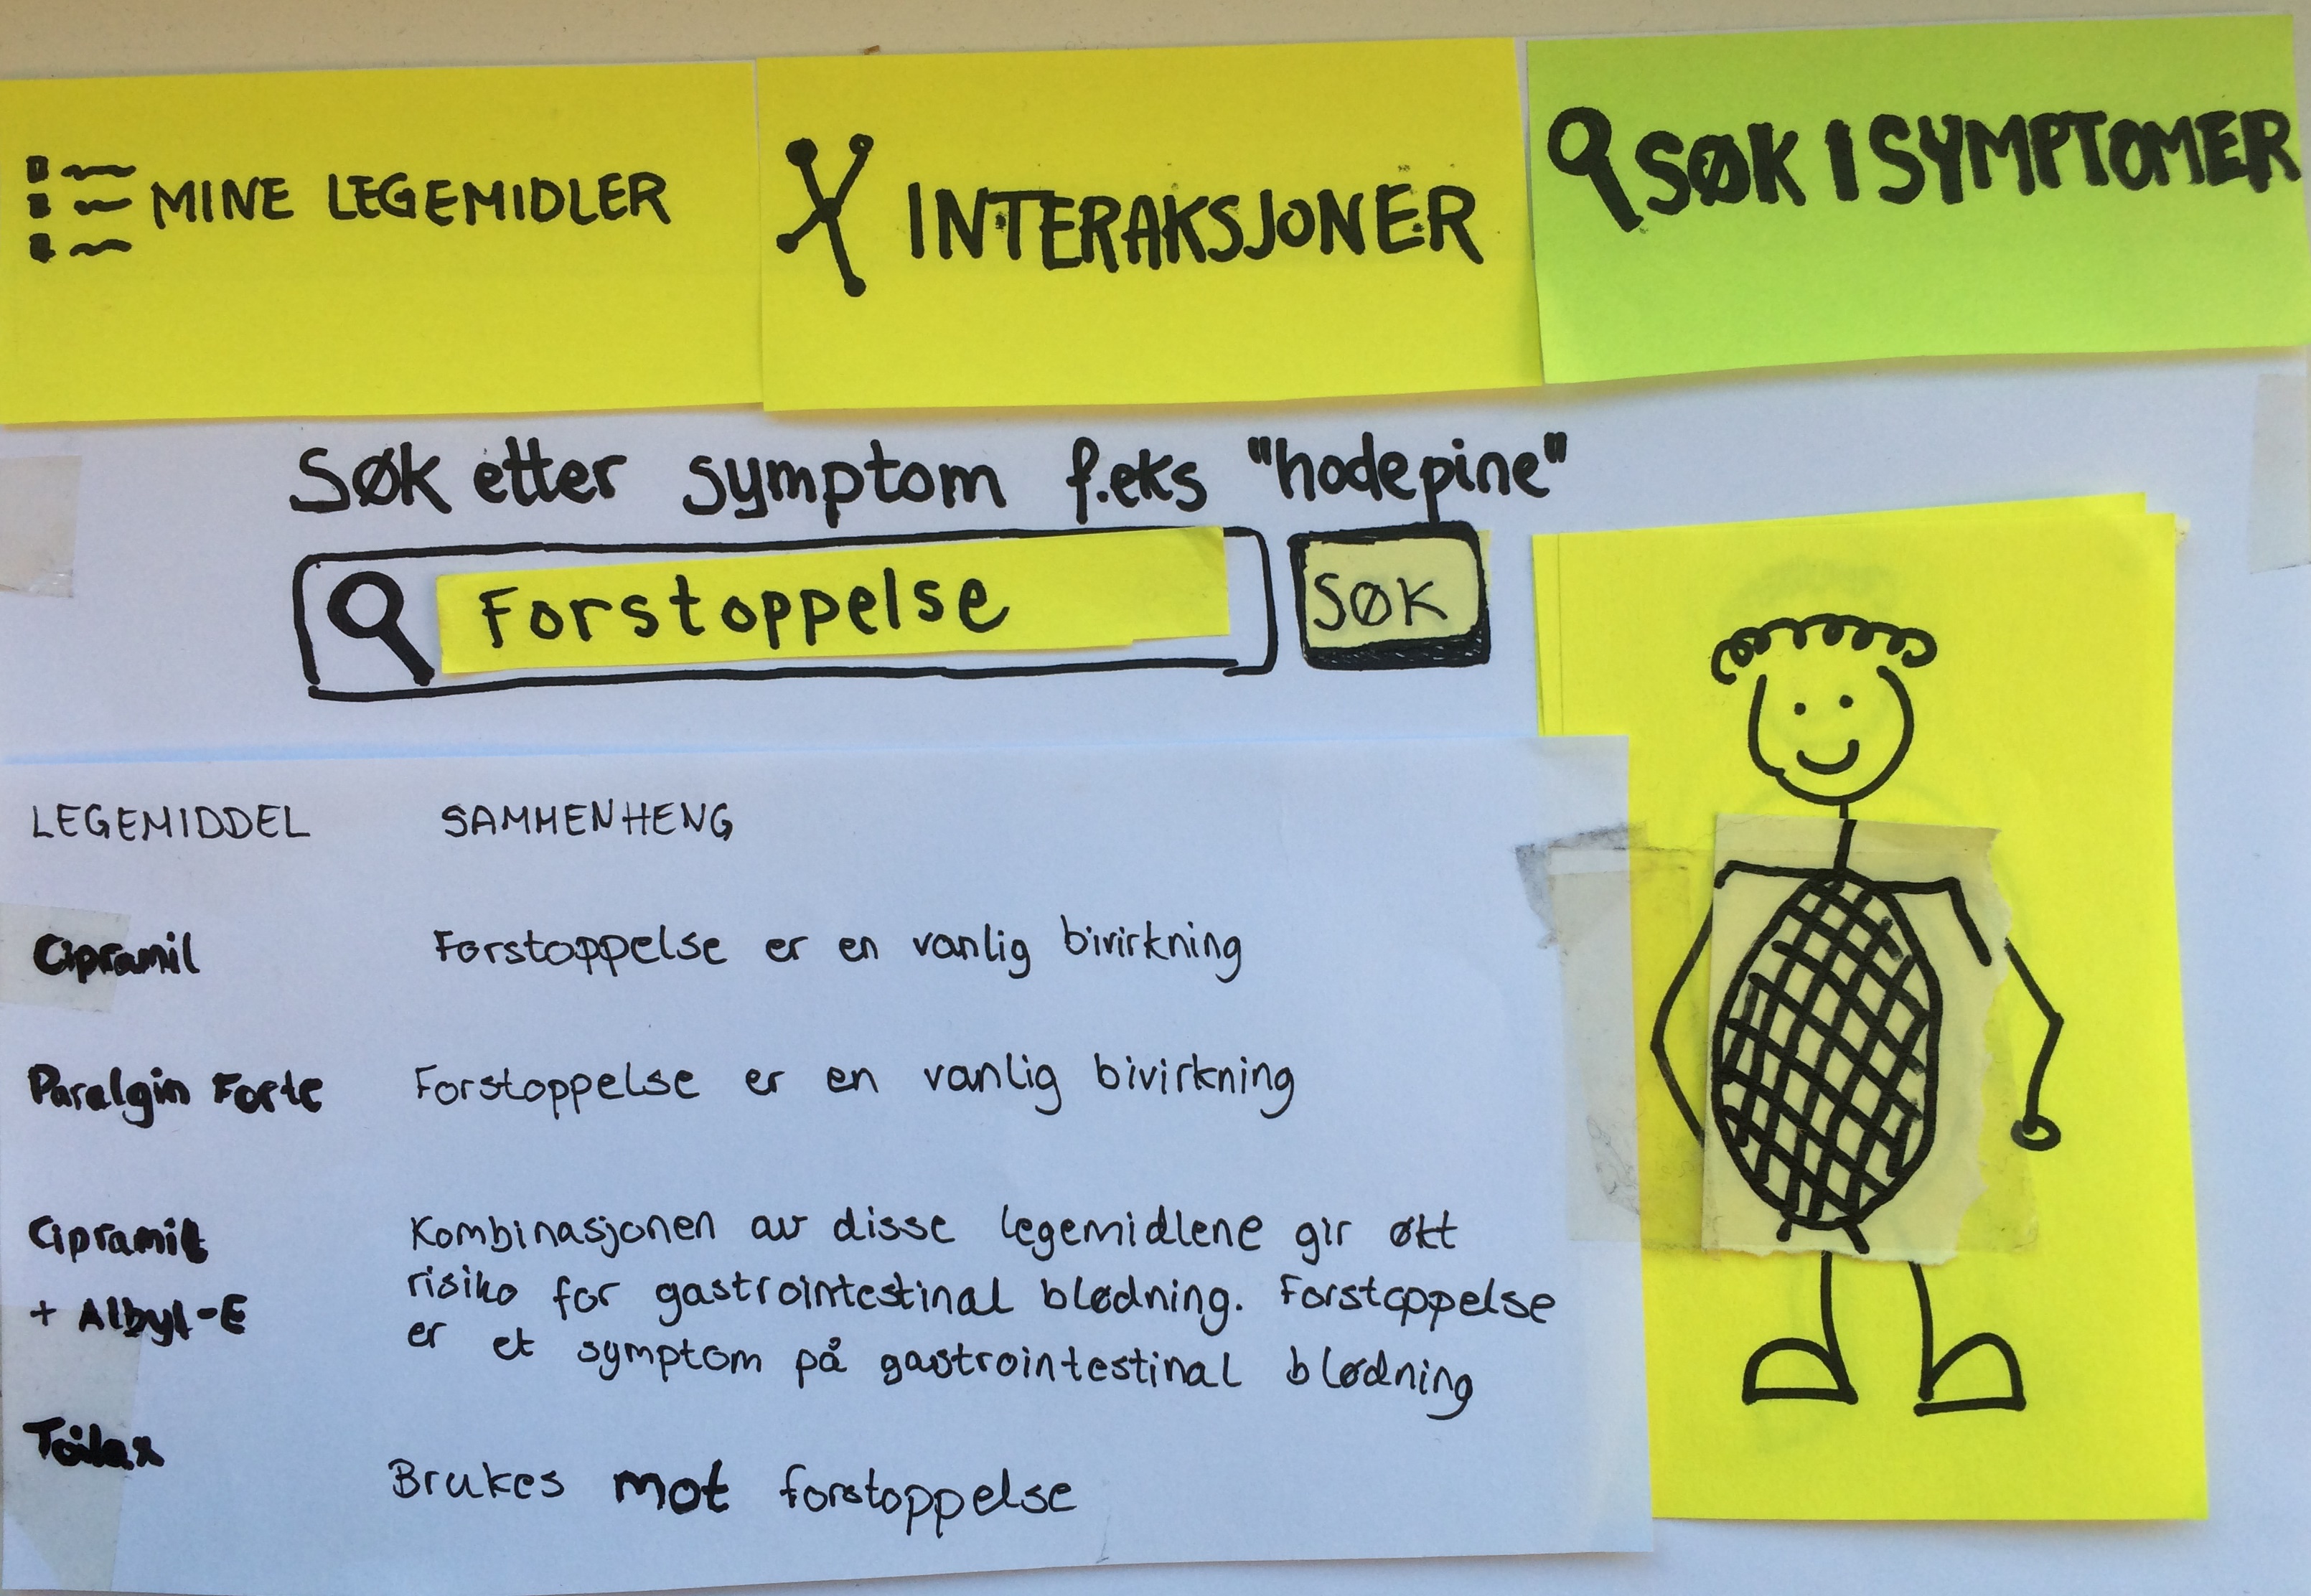 MINE LEGEMIDLER
INTERAKSJONER
SØK I SYMPTOMER
Søk etter symptom f.eks "hodepine"
Forstoppelse
SØK
LEGEMIDDEL SAMMENHENG
Cipramil Forstoppelse er en vanlig bivirkning
Paralgin Forte Forstoppelse er en vanlig bivirkning
Cipramil Kombinasjonen av disse legemidlene gir økt
+ Albyl-E risiko for gastrointestinal blødning. Forstoppelse
er et symptom på gastrointestinal blødning
Toilax
Brukes mot forstoppelse